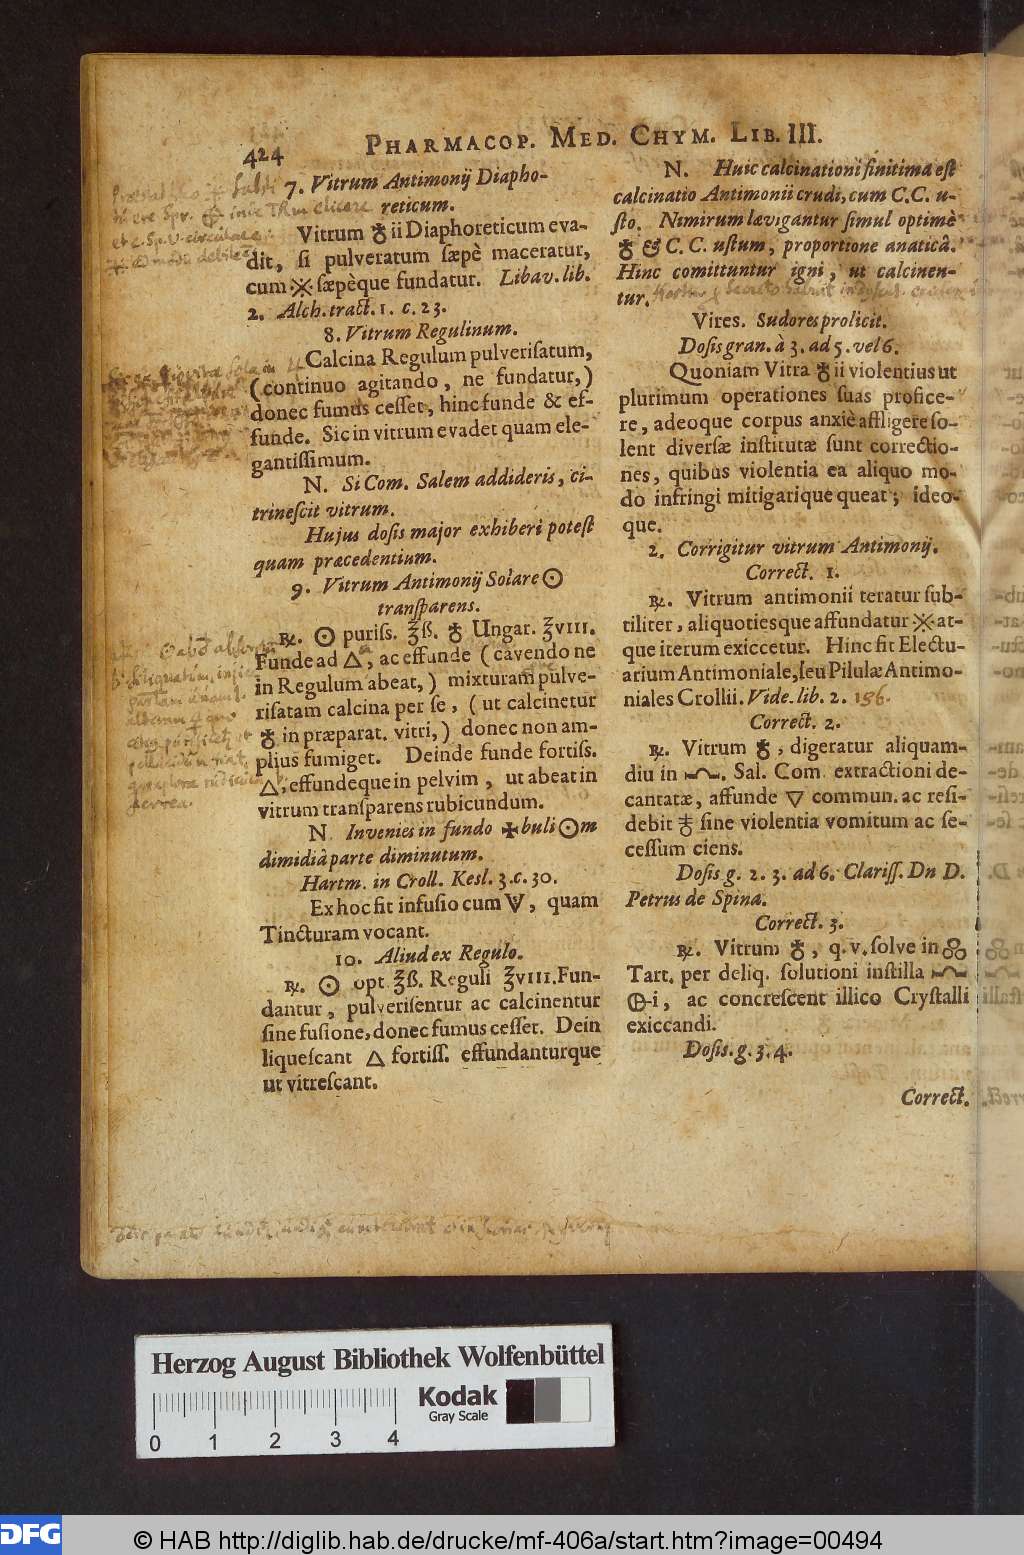 424
PHARMACOP. MED. CHYM. LIB. III.
7. Vitrum Antimonij Diapho-
reticum.
Vitrum ♁ii Diaphoreticum eva-
dit, si pulveratum sæpè maceratur,
cum ※ sæpèque fundatur. Libav. lib.
2. Alch. tract. 1. c. 23.
8. Vitrum Regulinum.
Calcina Regulum pulverisatum,
(continuo agitando, ne fundatur,)
donec fumus cesset, hinc funde & ef-
funde. Sic in vitrum evadet quam ele-
gantissimum.
N. Si Com. Salem addideris, ci-
trinescit vitrum.
Hujus dosis major exhiberi potest
quam præcedentium.
9. Vitrum Antimonij Solare ☉
transparens.
℞. ☉ puriss. ℥ß. ♁ Ungar. ℥viii.
Funde ad △, ac effunde (cavendo ne
in Regulum abeat,) mixturam pulve-
risatam calcina per se, (ut calcinetur
♁ in præparat. vitri,) donec non am-
plius fumiget. Deinde funde fortiss.
△, effundeque in pelvim, ut abeat in
vitrum transparens rubicundum.
N. Invenies in fundo ✠buli☉m
dimidiâ parte diminutum.
Hartm. in Croll. Kesl. 3. c. 30.
Ex hoc fit infusio cum V, quam
Tincturam vocant.
10. Aliud ex Regulo.
℞. ☉ opt ℥ß. Reguli ℥viii. Fun-
dantur, pulverisentur ac calcinentur
sine fusione, donec fumus cesset. Dein
liquescant △ fortiss. effundanturque
ut vitrescant.
N. Huic calcinationi finitima est
calcinatio Antimonii crudi, cum C.C. u-
sto. Nimirum lævigantur simul optimè
♁ & C. C. ustum, proportione anaticâ.
Hinc comittuntur igni, ut calcinen-
tur.
Vires. Sudores prolicit.
Dosis gran. à 3. ad 5. vel 6.
Quoniam Vitra ♁ii violentius ut
plurimum operationes suas profice-
re, adeoque corpus anxiè affligere so-
lent diversæ institutæ sunt correctio-
nes, quibus violentia ea aliquo mo-
do infringi mitigarique queat; ideo-
que.
2. Corrigitur vitrum Antimonij.
Correct. 1.
℞. Vitrum antimonii teratur sub-
tiliter, aliquotiesque affundatur ※ at-
que iterum exiccetur. Hinc fit Electu-
arium Antimoniale, seu Pilulæ Antimo-
niales Crollii. Vide. lib. 2. 156.
Correct. 2.
℞. Vitrum ♁, digeratur aliquam-
diu in. Sal. Com. extractioni de-
cantatæ, affunde ▽ commun. ac resi-
debit ♁ sine violentia vomitum ac se-
cessum ciens.
Dosis g. 2. 3. ad 6. Clariss. Dn D.
Petrus de Spina.
Correct. 3.
℞. Vitrum ♁, q. v. solve in
Tart. per deliq. solutioni instilla
-i, ac concrescent illico Crystalli
exiccandi.
Dosis. g. 3. 4.
Correct.
Herzog August Bibliothek Wolfenbüttel
Kodak
Gray Scale
0 1 2 3 4
DFG
© HAB http://diglib.hab.de/drucke/mf-406a/start.htm?image=00494